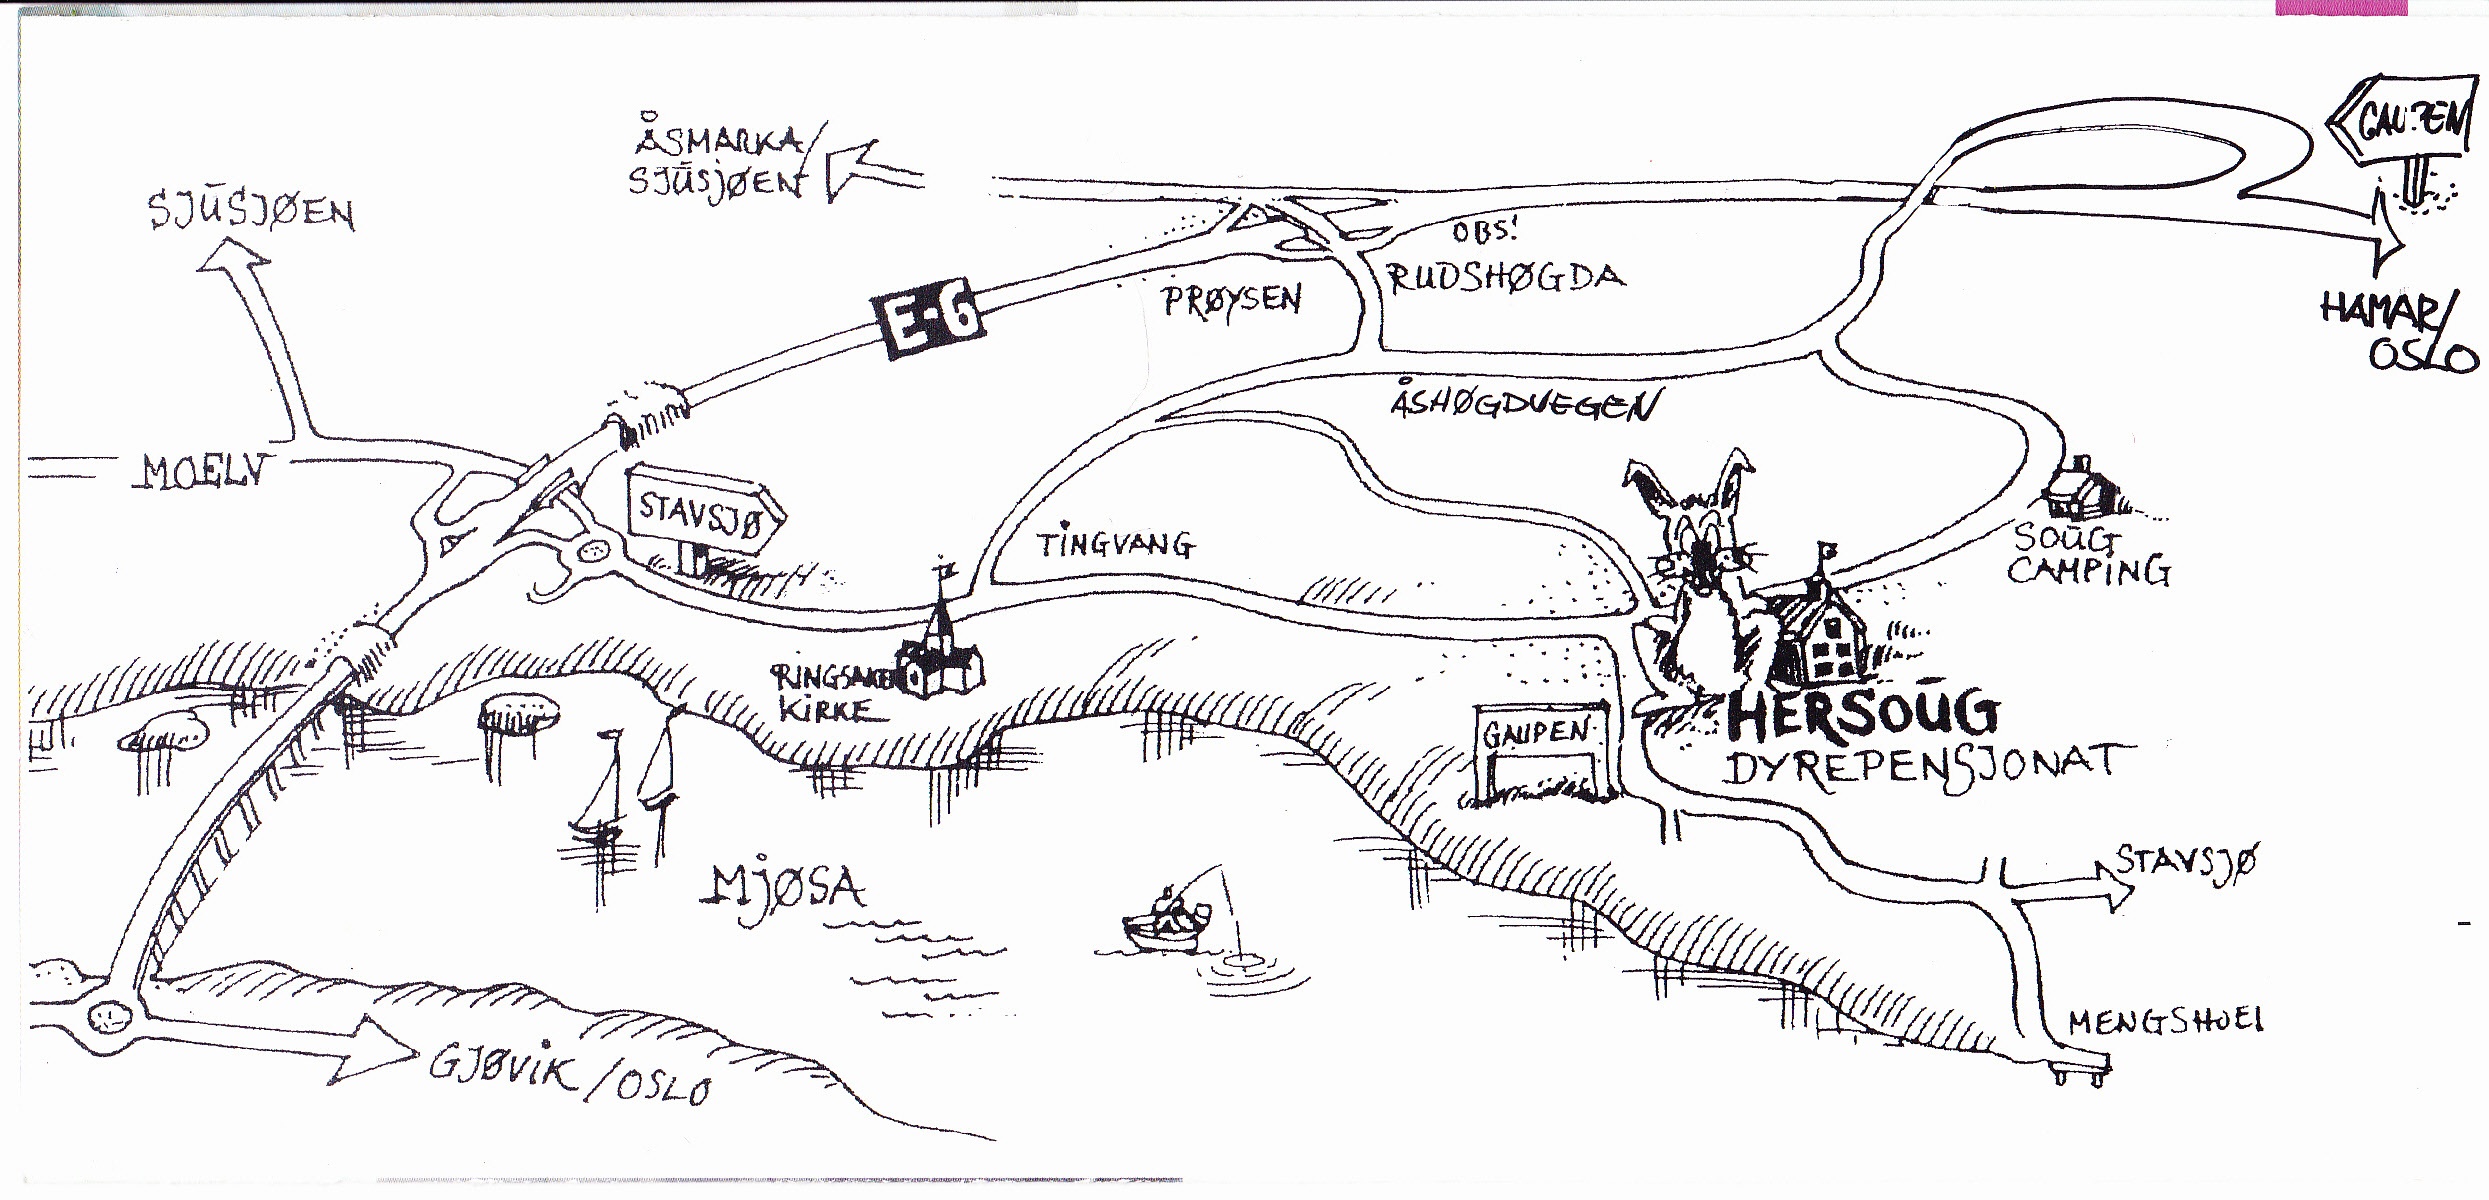 GAUPEN
ÅSMARKA/
SJŪSJØEN
SJŪSJØEN
OBS!
RUDSHØGDA
PRØYSEN
E·6
HAMAR/
OSLO
ÅSHØGDVEGEN
MOELV
STAVSJØ
TINGVANG
SOŪG
CAMPING
RINGSAKER
KIRKE
GAUPEN
HERSOŪG
DYREPENSJONAT
STAVSJØ
MJØSA
MENGSHOEL
GJØVIK/OSLO